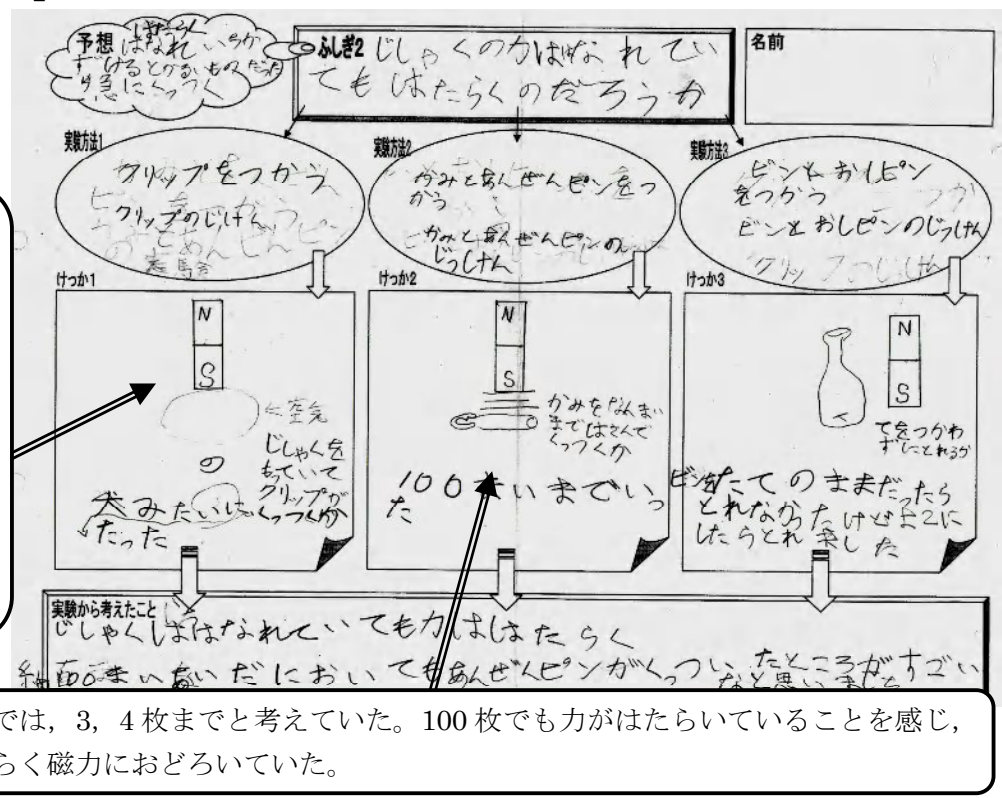 予想
はたらく
はなれ
急にくっつく
ふしぎ2 じしゃくの力ははなれてい
てもはたらくのだろうか
名前
実験方法1
クリップをつかう
クリップのじっけん
実験方法2
かみとあんぜんピンをつ
かう
かみとあんぜんピンの
じっけん
実験方法3
ビンとおしピン
をつかう
ビンとおしピンのじっけん
けっか1
N
S
←空気
じしゃくを
もっていて
クリップが
くっつくか
の
犬みたいに
たった
けっか2
N
S
かみをなんまい
まではさんで
くっつくか
100まいまでいっ
た
けっか3
N
S
てをつかわ
ずにとれるか
ビンをたてのままだったら
とれなかったけど
したらとれ
実験から考えたこと
じしゃくははなれていても力ははたらく
紙100まいあいだにおいてもあんぜんピンがくっついたところがすごい
なと思いました
では，3，4枚までと考えていた。100枚でも力がはたらいていることを感じ，
らく磁力におどろいていた。